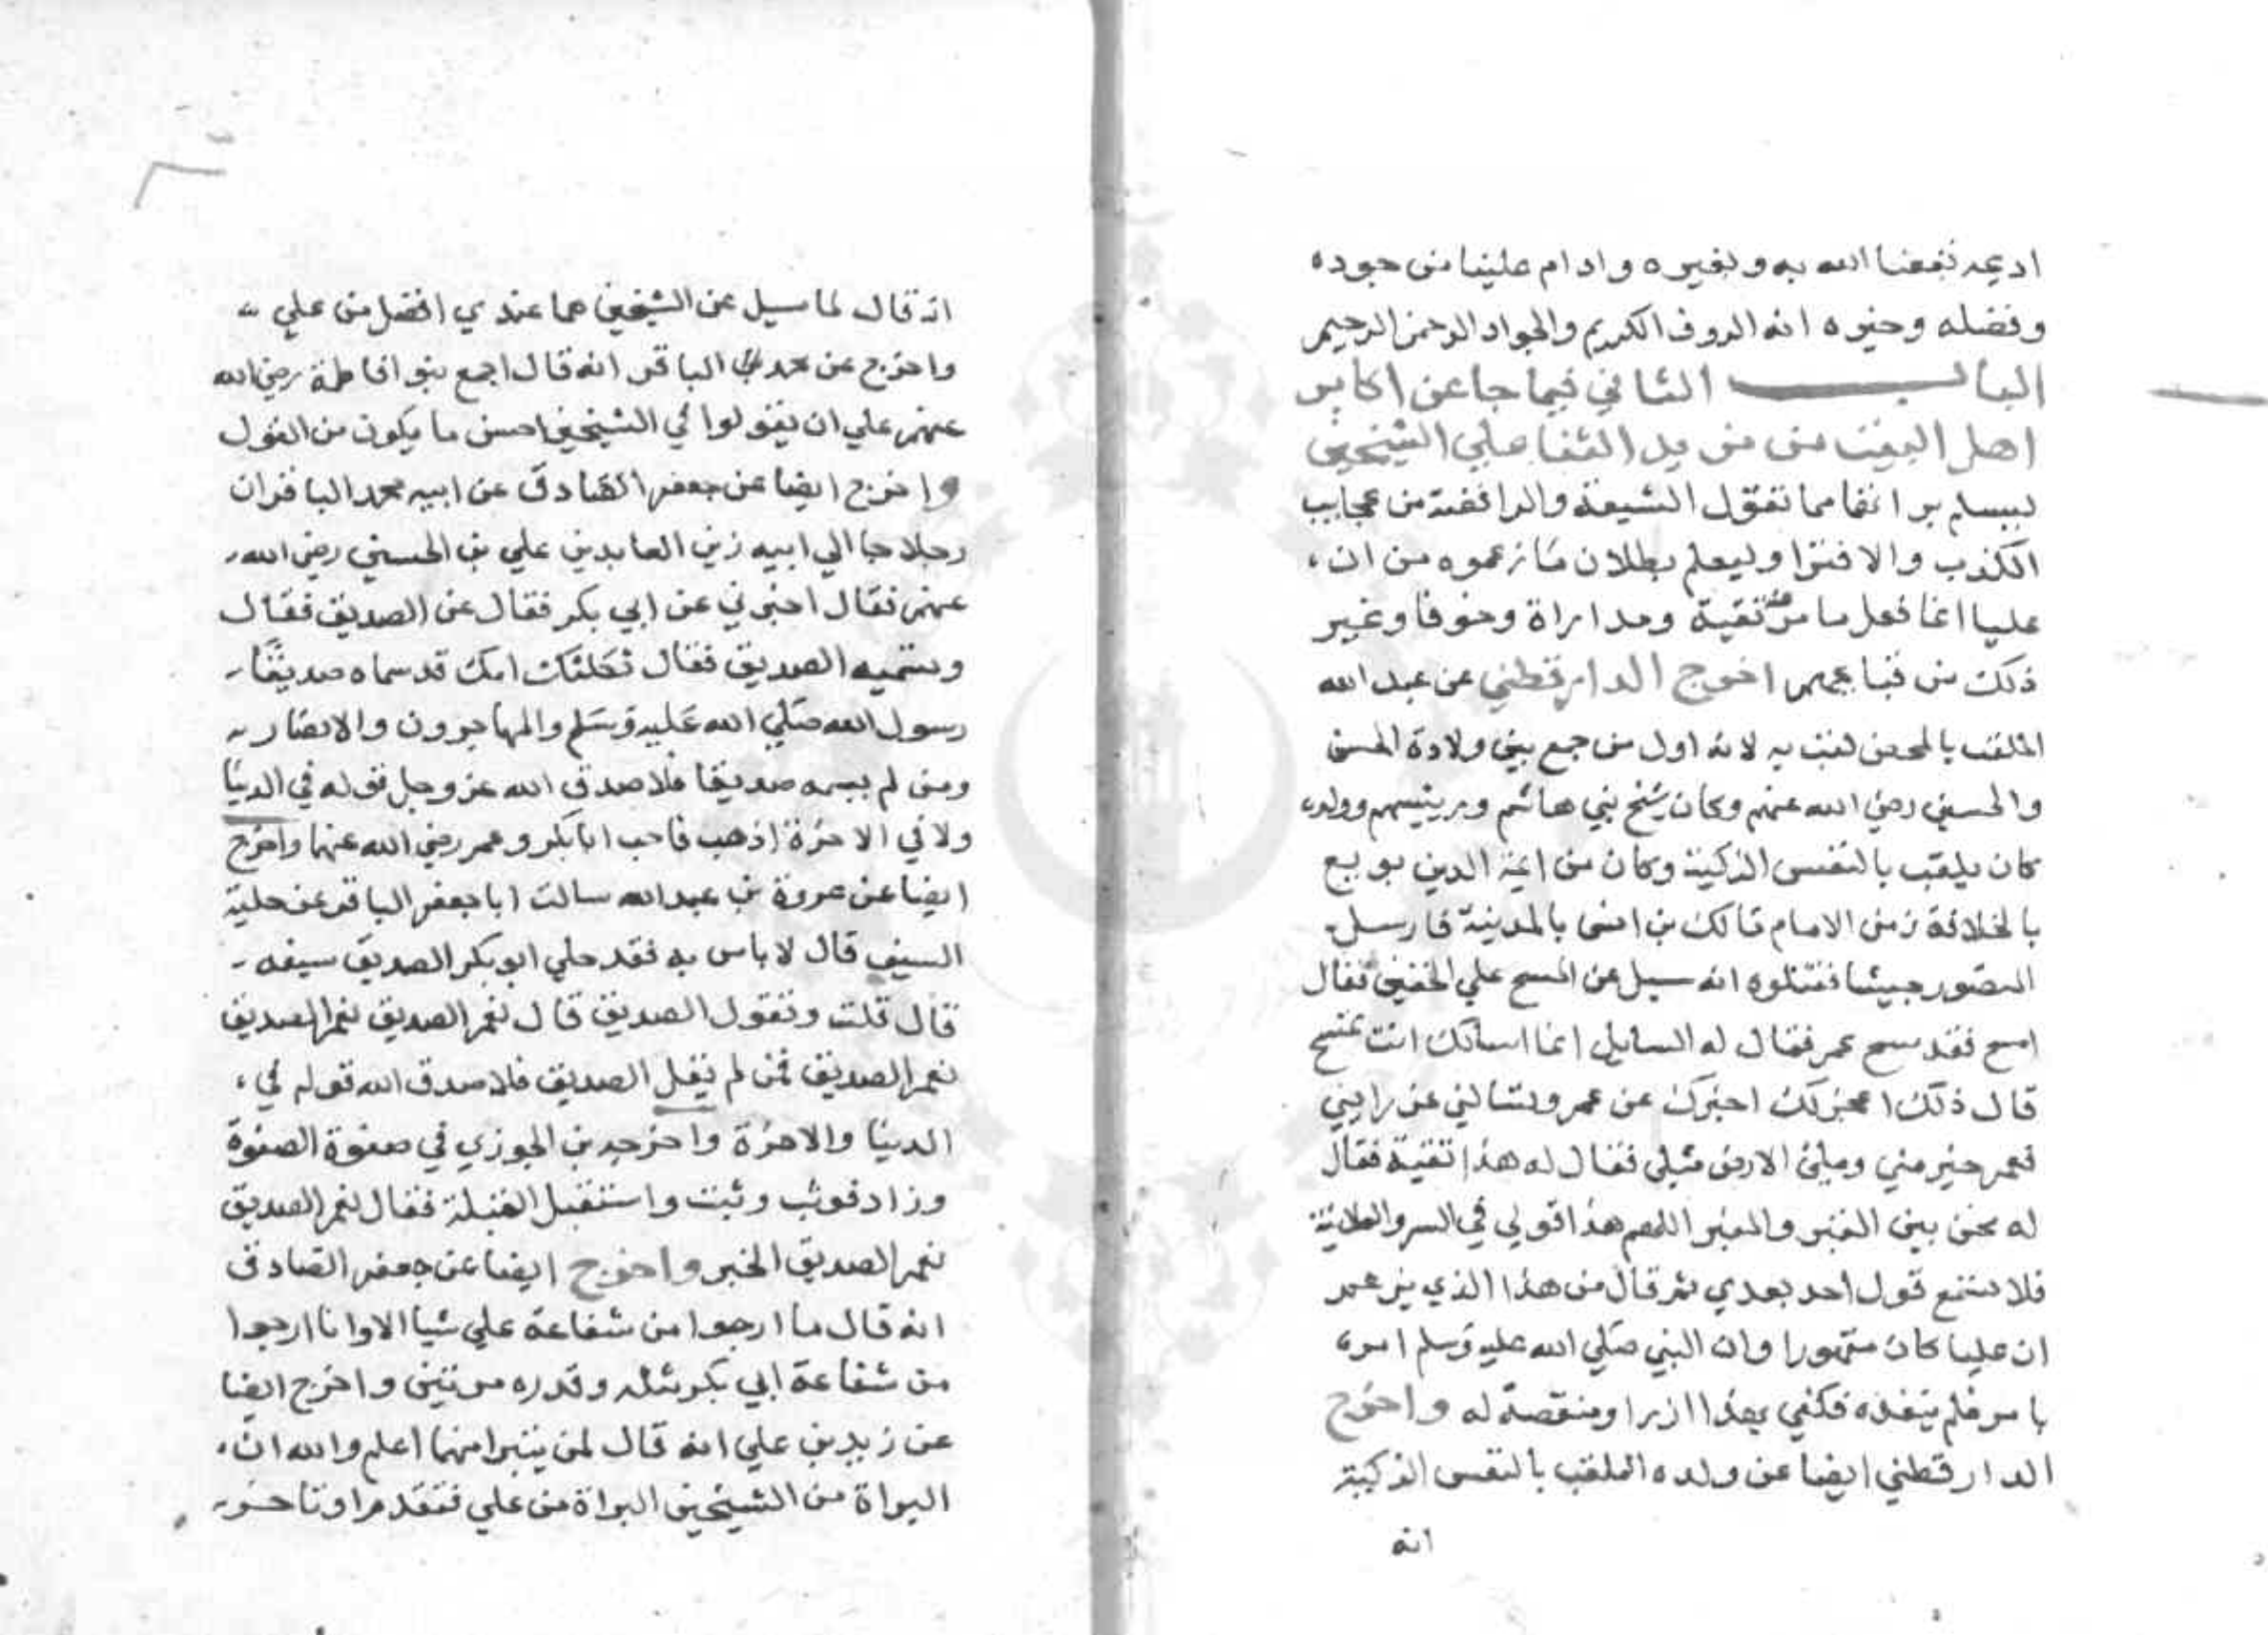 اديمه نفعنا الله به وبغيره وادام علينا من جوده
وفضله وخيره انه الروف الكريم والجواد الرحمن الرحيم
الباب الثاني فيما جا عن اكابر
اهل البيت من مزيد الثنا علي الشيخين
ليسلم براتهما مما تقول الشيعة والرافضة من عجايب
الكذب والافترا وليعلم بطلان ما زعموه من ان
عليا انما فعل ما مر عنه تقية ومداراة وخوفا وغير
ذلك من قبايحهم اخرج الدارقطني عن عبد الله
الملقب بالمحض لقب به لانه اول من جمع بين ولادة الحسن
والحسين رضي الله عنهم وكان شيخ بني هاشم ورييسهم وولده
كان يلقب بالنفس الزكية وكان من ايمة الدين بويع
بالخلافة زمن الامام مالك بن انس بالمدينة فارسل
المنصور جيشا فقتلوه انه سيل عن المسح علي الخفين فقال
امسح فقد مسح عمر فقال له السايل انما اسالك انت تمسح
قال ذلك اعجز لك اخبرك عن عمر وتسالني عن رايي
فعمر خير مني وملئ الارض مثلي فقال له هذا تقية فقال
له نحن بين القبر والمنبر اللهم هذا قولي في السر والعلانية
فلا تسمع قول احد بعدي ثم قال من هذا الذي يزعم
ان عليا كان مقهورا وان النبي صلي الله عليه وسلم امره
بامر فلم ينفذه فكفي بهذا ازرا ومنقصة له واخرج
الدارقطني ايضا عن ولده الملقب بالنفس الزكية
انه
انه قال لما سيل عن الشيخين هما عندي افضل من علي
واخرج عن محمد الباقر انه قال اجمع بنوا فاطمة رضي الله
عنهم علي ان يقولوا في الشيخين احسن ما يكون من القول
واخرج ايضا عن جعفر الصادق عن ابيه محمد الباقر ان
رجلا جا الي ابيه زين العابدين علي بن الحسين رضي الله
عنهم فقال اخبرني عن ابي بكر فقال عن الصديق فقال
وتسميه الصديق فقال ثكلتك امك قد سماه صديقا
رسول الله صلي الله عليه وسلم والمهاجرون والانصار
ومن لم يسمه صديقا فلا صدق الله عز وجل قوله في الدنيا
ولا في الاخرة اذهب فاحب ابا بكر وعمر رضي الله عنهما واخرج
ايضا عن عروة بن عبد الله سالت ابا جعفر الباقر عن حلية
السيف قال لا باس به فقد حلي ابو بكر الصديق سيفه
قال قلت وتقول الصديق قال نعم الصديق نعم الصديق
نعم الصديق فمن لم يقل الصديق فلا صدق الله قوله في
الدنيا والاخرة واخرجه بن الجوزي في صفوة الصفوة
وزاد فوثب وثبت واستقبل القبلة فقال نعم الصديق
نعم الصديق الخبر واخرج ايضا عن جعفر الصادق
انه قال ما ارجوا من شفاعة علي شيا الا وانا ارجوا
من شفاعة ابي بكر مثله وقدره مرتين واخرج ايضا
عن زيد بن علي انه قال لمن يتبرا منهما اعلم والله ان
البراة من الشيخين البراة من علي فتقدم او تاخر